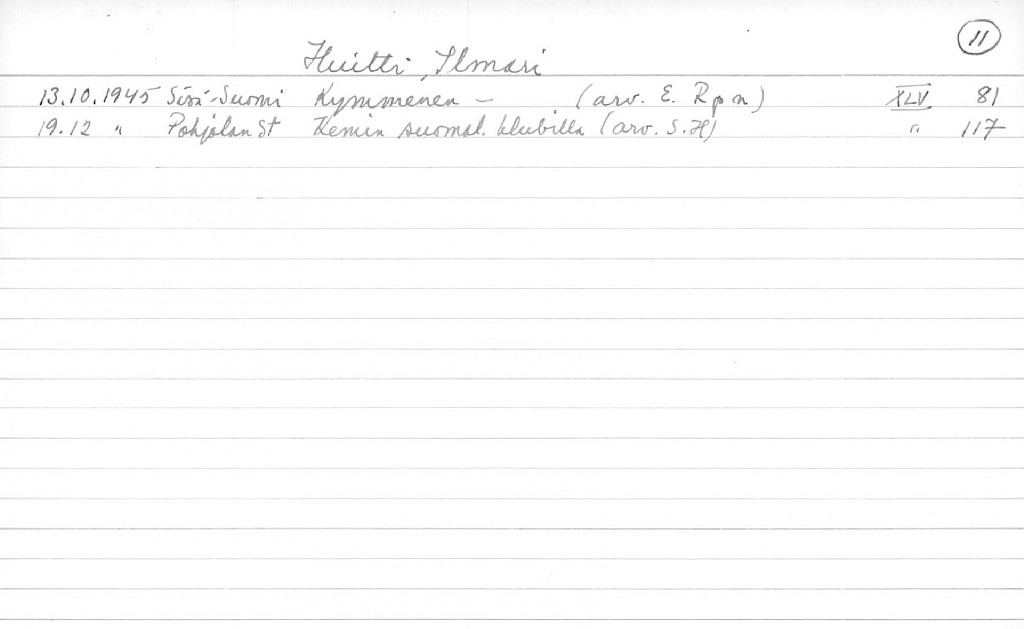 11
Huitti, Ilmari
13.10.1945 Sisä-Suomi Kymmenen – (arv. E. Rpn) XLV 81
19.12 " Pohjolan St Kemin suomal. klubilla (arv. S.H) " 117